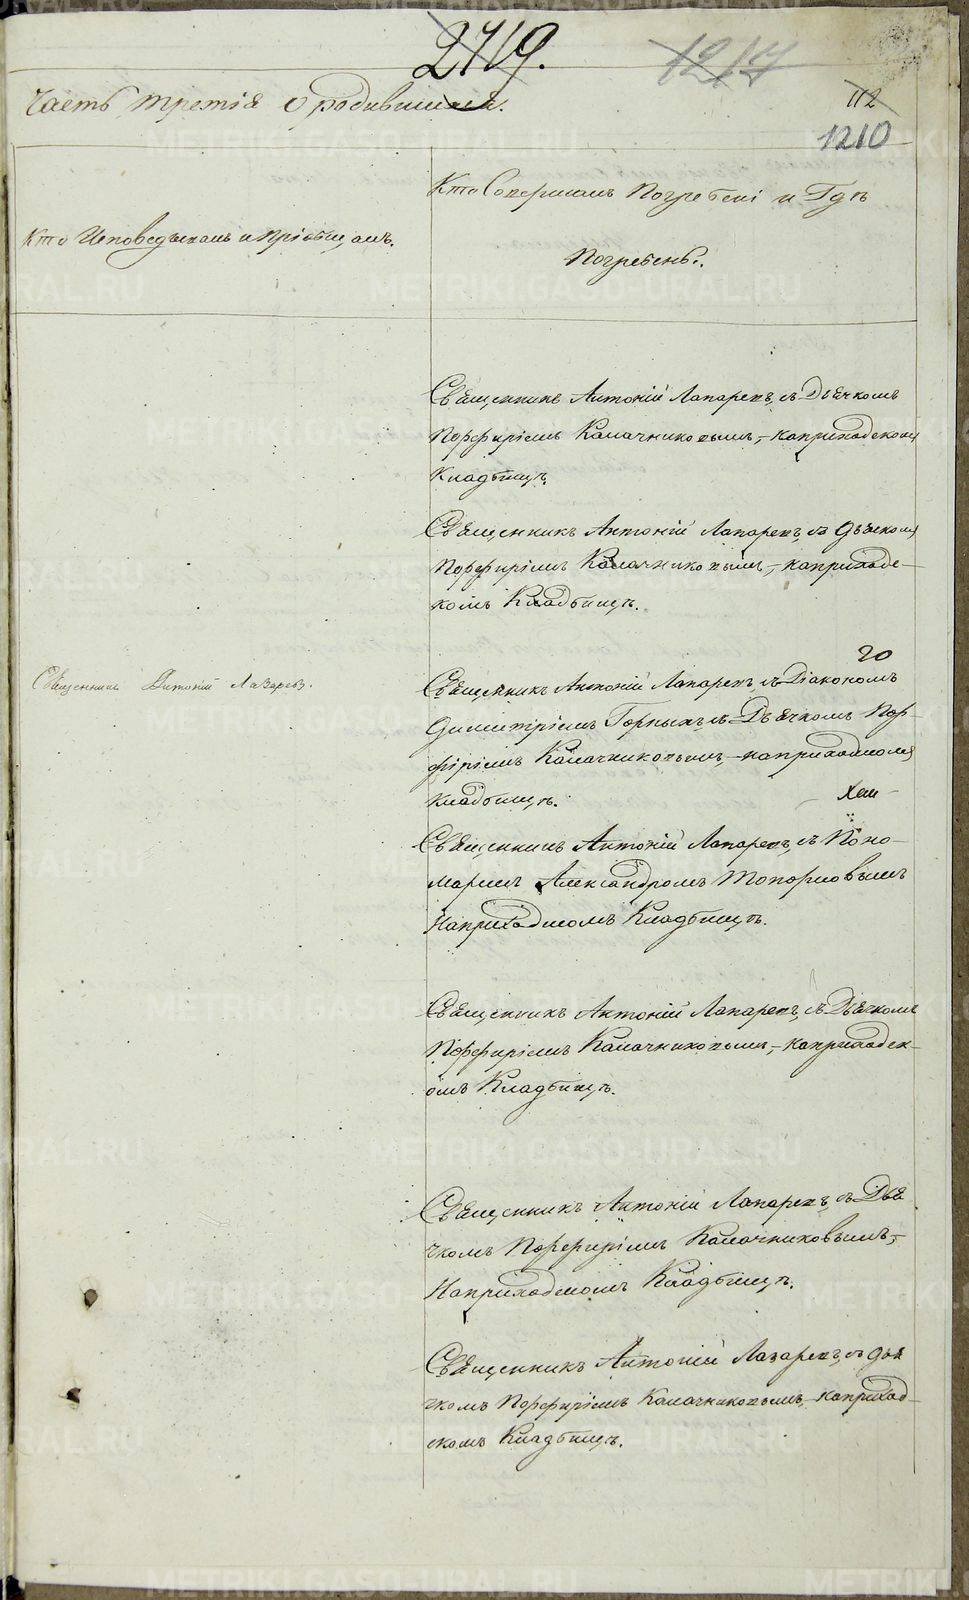 2419.
1217
Часть третія о родившихся.
112
1210
Кто Совершалъ Погребені и Гдѣ
Кто Исповедывалъ и Пріобщалъ.
Погребенъ.
Священникъ Антоній Лапаревъ, съ Дьячкомъ
Порфиріемъ Калачниковымъ, наприходскомъ
Кладбищѣ
Священникъ Антоній Лапаревъ, съ дьячкомъ
Порфиріемъ Калачниковымъ, наприходс-
комъ Кладбищѣ.
го
Священникъ Антоній Лазаревъ.
Священникъ Антоній Лапаревъ, съ Діакономъ
Димитріемъ Горныхъ, съ Дьячкомъ Пор-
фіріемъ Калачниковымъ, наприходскомъ
Кладбищѣ.
Священникъ Антоній Лапаревъ, съ Поно-
маремъ Александромъ Топорковымъ
Наприходскомъ Кладбищѣ.
Священникъ Антоній Лапаревъ, съ Дьячкомъ
Порфиріемъ Калачниковымъ, наприходск-
омъ Кладбищѣ.
Священникъ Антоній Лапаревъ, съ Дья
чкомъ Порфиріемъ Калачниковымъ,
Наприходскомъ Кладбищѣ.
Священникъ Антоній Лазаревъ, съ дья
чкомъ Порфиріемъ Калачниковымъ, наприход-
скомъ Кладбищѣ.
METRIKI.GASO-URAL.RU